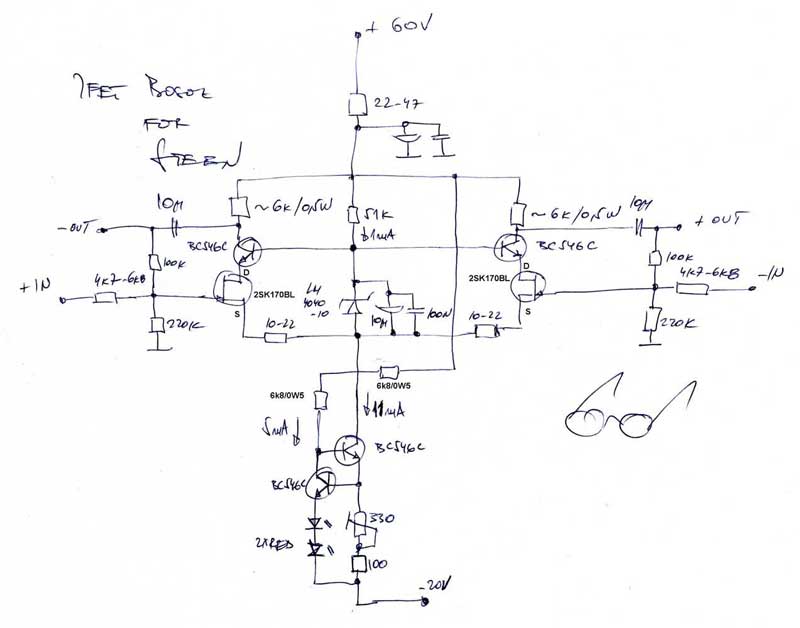 + 60V
JFET BOSOZ
FOR
22-47
10µ
~6K/0,5W
51K
~6K/0,5W
10µ
-OUT
↓1mA
+OUT
BC546C
BC546C
100K
100K
+IN
4K7-6K8
D
2SK170BL
LM
4040
-10
2SK170BL
D
4K7-6K8
-IN
S
10µ
100N
S
220K
10-22
10-22
220K
6k8/0W5
6k8/0W5
↓11mA
5mA
BC546C
BC546C
2XRED
330
100
-20V